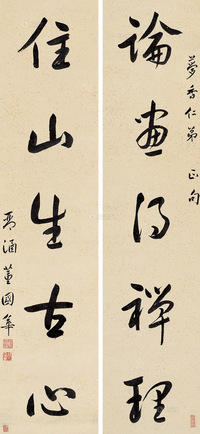 夢香仁弟 正句
論畫得禪理
住山生古心
琴涵董國華